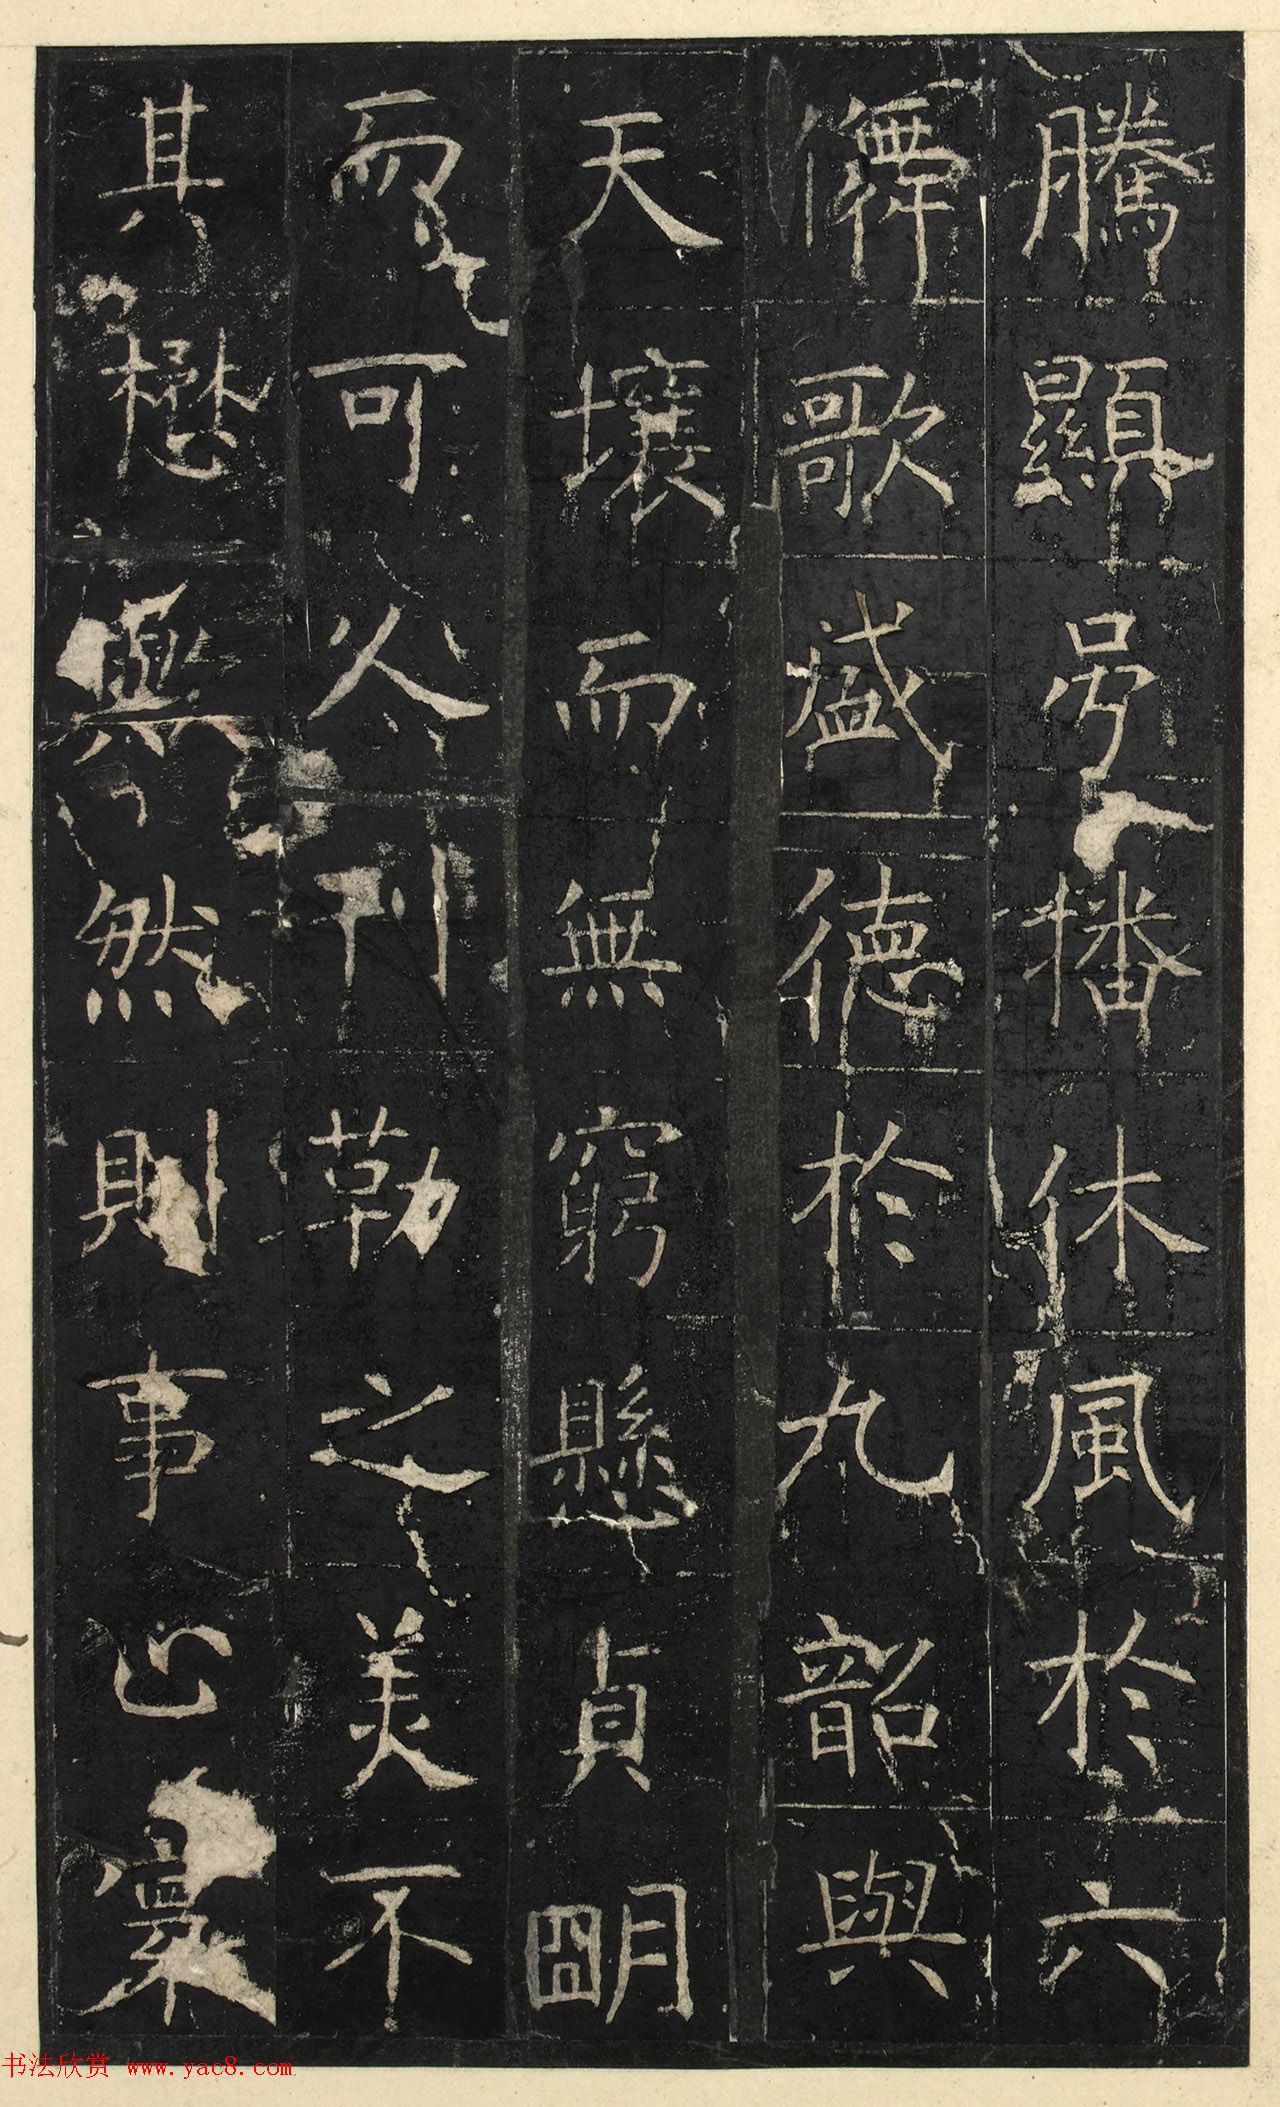 騰顯号播休風於六
儛歌盛德於九韶與
天壤而無窮懸貞朙
而可久刊勒之美不
其懋與然則事止
书法欣赏 www.yac8.com